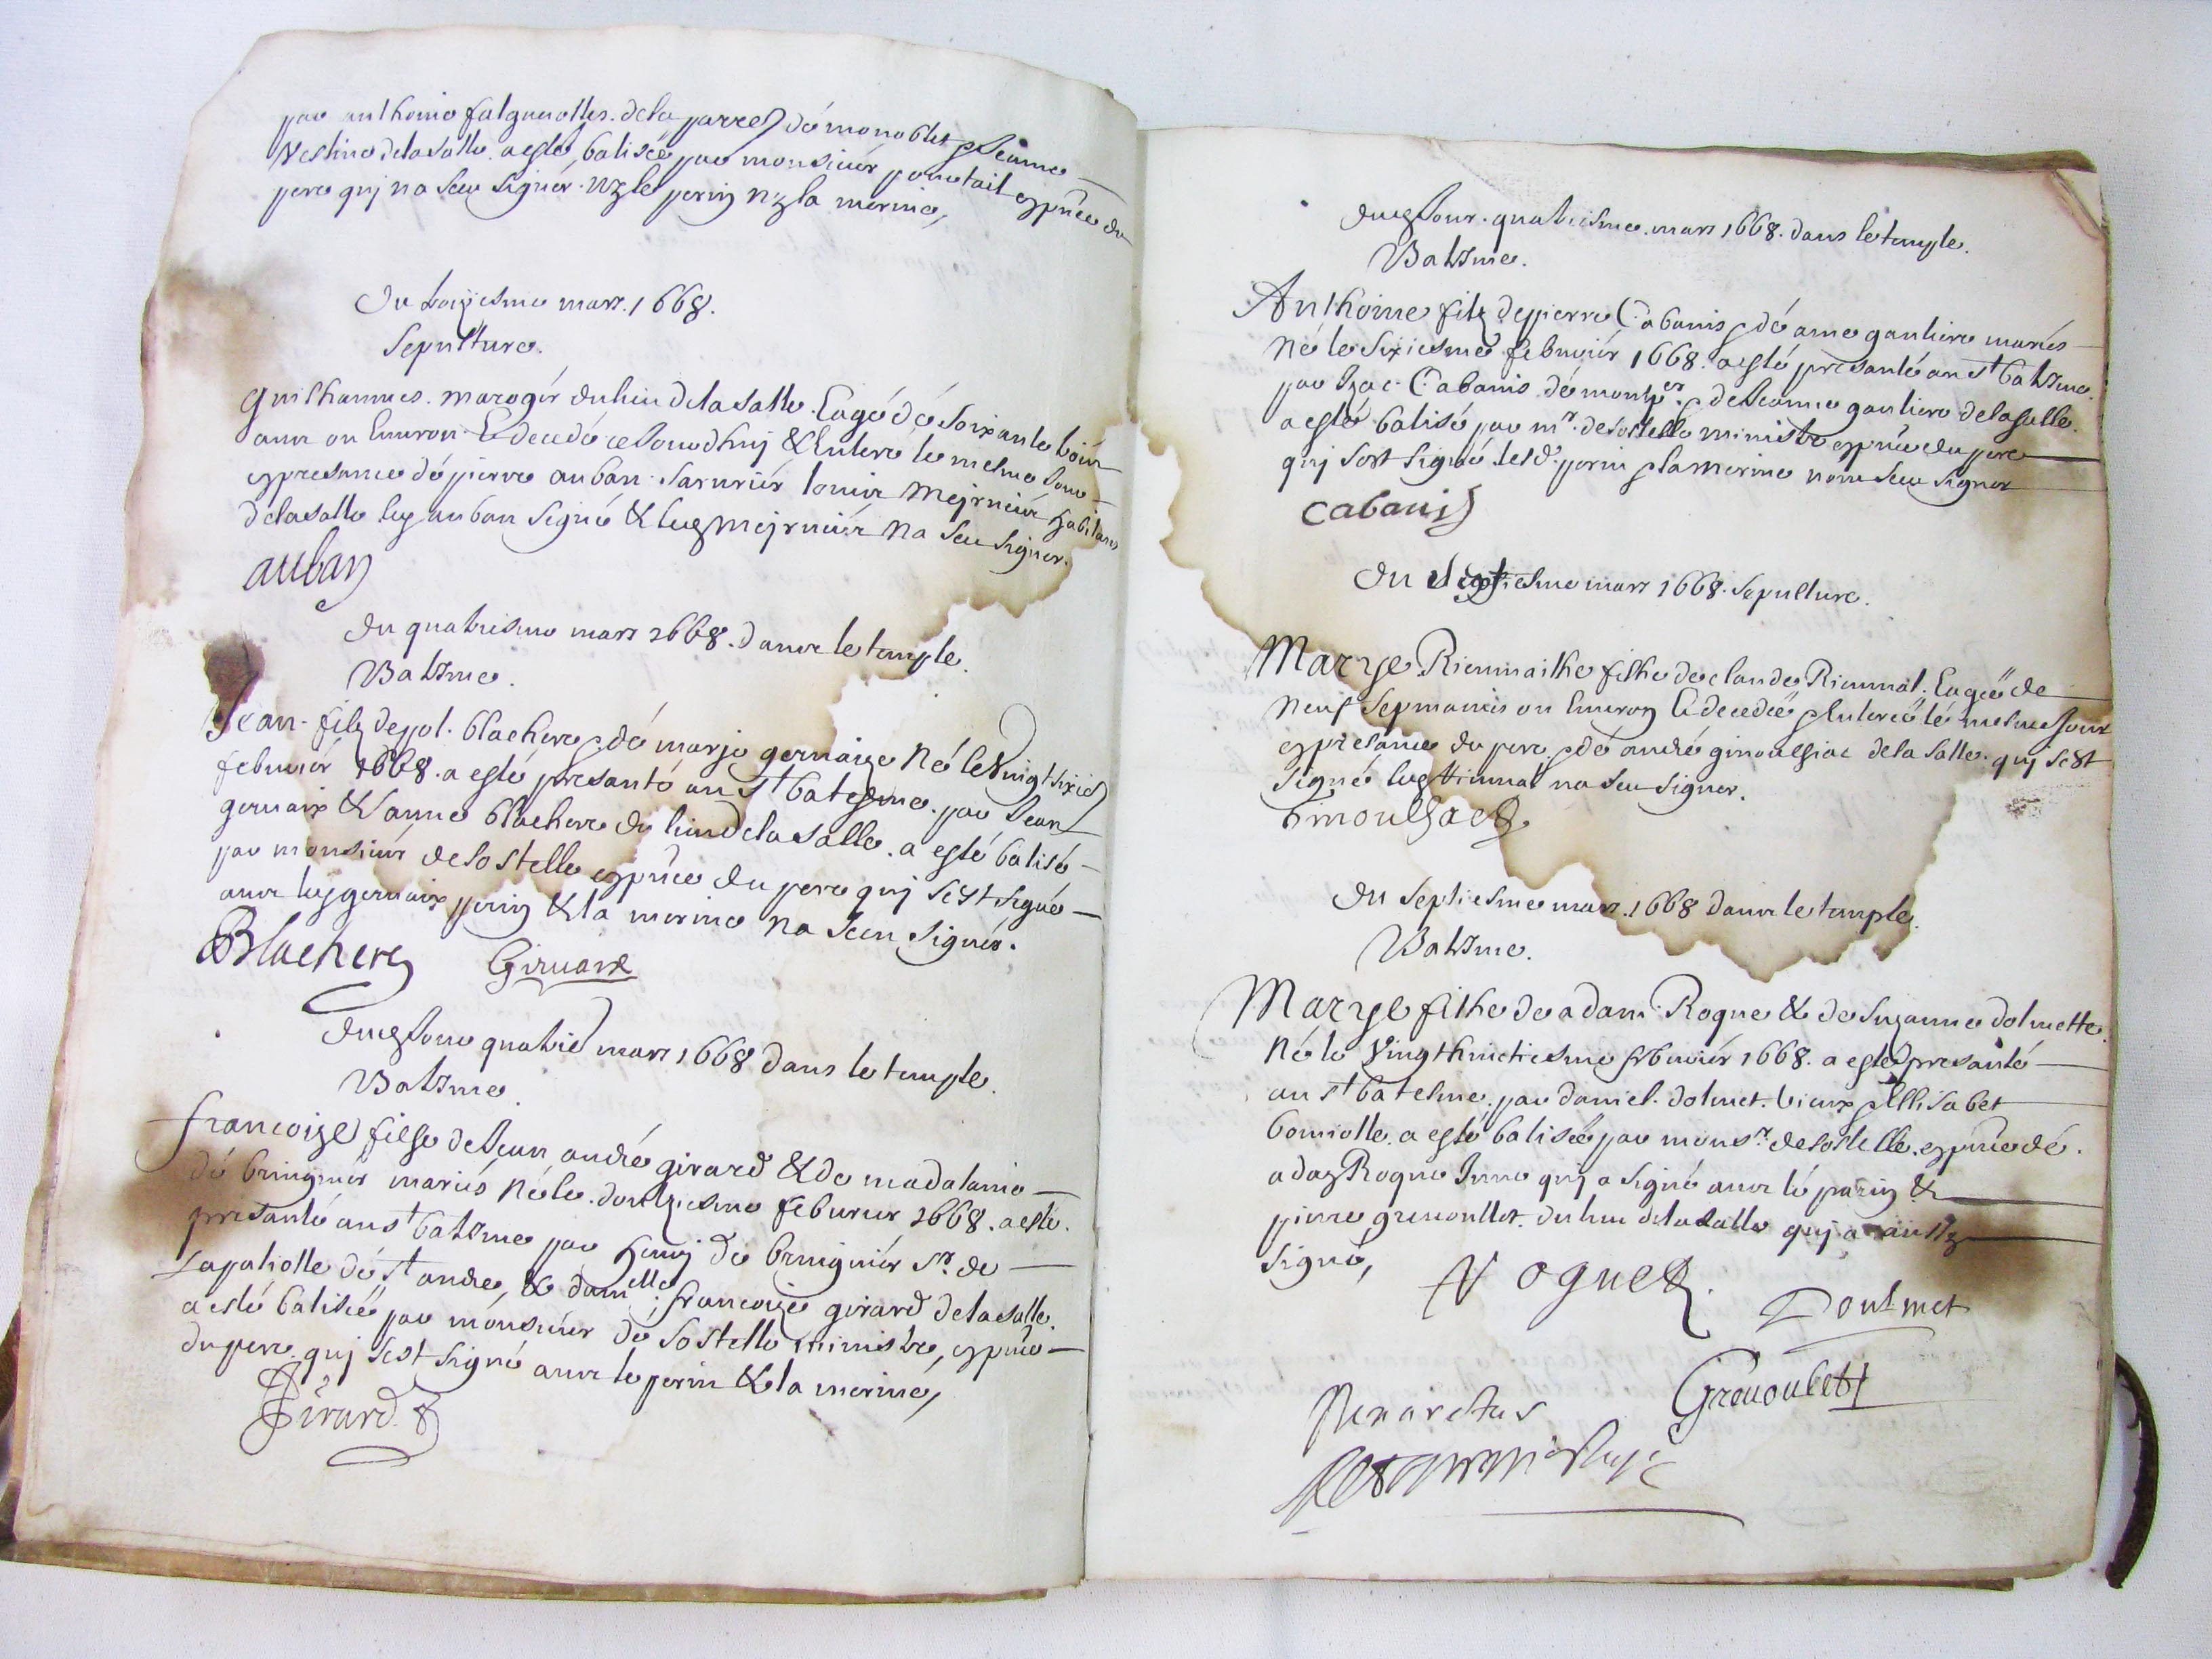 par anthoine falguerolles de la parre de monoblet & Jeanne
Vestine delasalle a esté batisée par monsieur ponetail en pnce du
pere quj na seu signer. Nz le perin nz la merine,
Du troiziesme mars. 1668.
Sepulture.
Guilhaumes. marogér du lieu delasalle. Eagé dé Soixante trois
ans ou Environ. E decedé ce Jourdhuj & Enteré le mesme Jour
en presance dé pierre auban sarurier louis mejrnieur habitans
delasalle led auban signé & led mejrnieur na seu signer.
auban
Du quatriesme mars 1668. dans le temple.
Batsme.
Jean. filz de pol. blachere & dé marje gervaize Né le Vingtsixie
febvrier 1668. a esté presanté au st batesme. par Jean
gervaix & anne blachere du lieu delasalle. a esté batisé
par monsieur desostelle en pnce du pere quj sest signé
avec led gervaix perin & la merine na seu signér.
Blachere Girvaix
Dud Jour quatrie mars 1668 dans le temple.
Batsme.
francoize filhe de Jean andré girard & de madalaine
dé bruguiér mariés Née le. doutziesme feburier 1668. a esté.
presantée au st batsme par Henrj de bruguiér sr. de
Lapaliolle dé st andre, & damlle francoize girard delasalle.
a esté batisée par monsieur dé sostelle ministre, en pnce
du pere. quj sest signé avec le perin & la merine,
Girard.
Dud Jour. quatriesme. mars 1668. dans le temple.
Batsme.
Anthoine filz de pierre Cabanis & dé anne gautiere mariés
Né le sixiesme febvrier 1668. a esté presanté au st batsme.
par Izac. Cabanis dé montper. & de Jeanne gautiere delasalle.
a esté batisé par mr. desostelle ministre en pnce du pere
quj sest signé lesd. perin & la merine nont seu signer
Cabanis
Du septiesme mars 1668. Sepulture.
Marye Rieumailhe filhe de claude Rieumal. Eagée de
Neuf sepmaines ou Environ E decedée & Enterée lé mesme Jour
en presance du pere & dé andré ginoulhac delasalle. quj sest
signé led Rieumal na seu signer.
Ginoulhac
Du septiesme mars. 1668 dans le temple.
Batsme.
Marye filhe de adam Roque & de Suzanne dolmette.
Née le Vingthuictiesme febvriér 1668. a esté presantée
au st batesme. par daniel. dolmet. vieux & Ellisabet
bouriolle. a esté batisée par monsr. desostelle. en pnce dé.
adan Roque Jeune quj a signé avec le parin &
pierre grenoullet. du lieu delasalle quj a aussy
signé,
Roque
Doulmet
Grenoulet